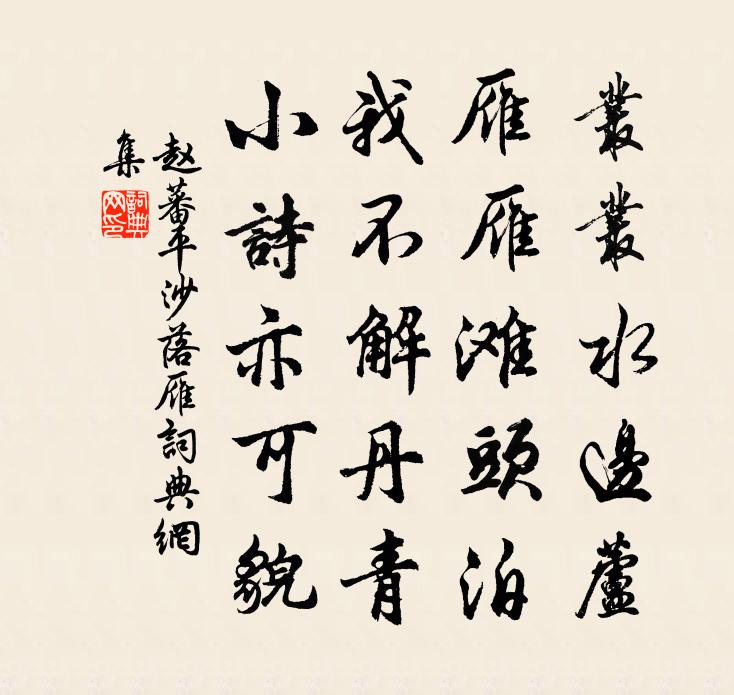 叢叢水邊蘆
雁雁滩頭泊
我不解丹青
小詩亦可貌
赵蕃平沙落雁詞典網
集
詞典
网印